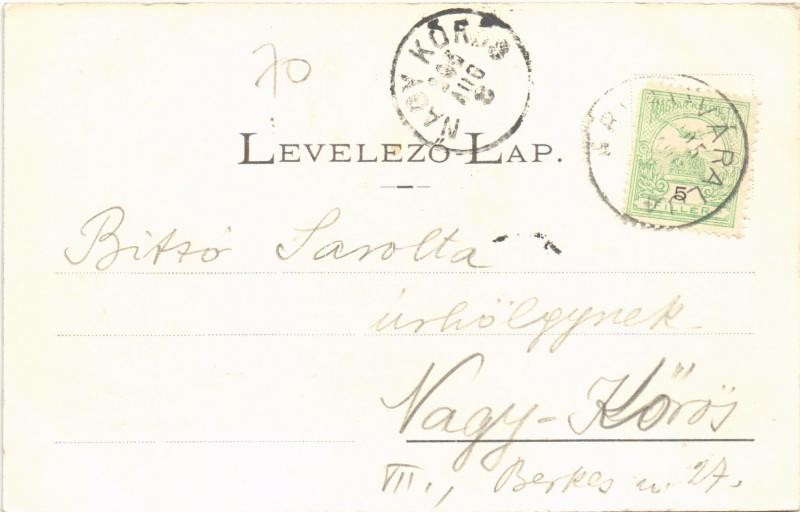 70
NAGY KŐRÖS
AUG 8
LEVELEZŐ-LAP.
MAGYAR KIR. POSTA
5
FILLÉR
Bitsó Sarolta
úrhölgynek
Nagy-Kőrös
VII., Berkes u. 27.